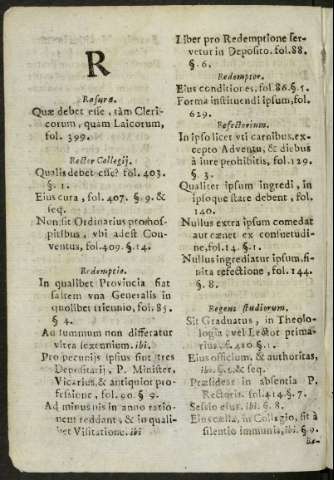 R
Rasura.
Quæ debet esse, tàm Cleri-
corum, quàm Laicorum,
fol. 399.
Rector Collegij.
Qualis debet esse? fol. 403.
§. 1.
Eius cura, fol. 407. §. 9. &
seq.
Non sit Ordinarius pro hos-
pitibus, vbi adest Con-
ventus, fol. 409. §. 14.
Redemptio.
In qualibet Provincia fiat
saltem vna Generalis in
quolibet triennio, fol. 85.
§ 4.
Ad summum non differatur
vltra sexennium. ibi.
Pro pecunijs ipsius sint tres
Depositarij, P. Minister,
Vicarius, & antiquior pro-
fessione, fol. 90. § 9.
Ad minus bis in anno ratio-
nem reddant, & in quali-
bet Visitatione. ibi
Liber pro Redemptione ser-
vetur in Deposito. fol. 88.
§. 6.
Redemptor.
Eius conditiones, fol. 86. §. 5.
Forma instituendi ipsum, fol.
629.
Refectorium.
In ipso licet vti carnibus, ex-
cepto Adventu, & diebus
à iure prohibitis, fol. 129.
§. 3.
Qualiter ipsum ingredi, in
ipsoque stare debent, fol.
140.
Nullus extra ipsum comedat
aut cœnet ex consuetudi-
ne, fol. 14. §. 1.
Nullus ingrediatur ipsum, fi-
nita refectione, fol. 144.
§. 8.
Regens studiorum.
Sit Graduatus, in Theolo-
logia, vel Lector prima-
rius, f. 410 §. 1.
Eius officium, & authoritas,
ibi. & seq.
Præsideat in absentia P.
Rectoris. fol. 414. §. 7.
Sessio eius. ibi. §. 8.
Eius cella, in Collegio, sit à
silentio immunis, ibi. § 9.